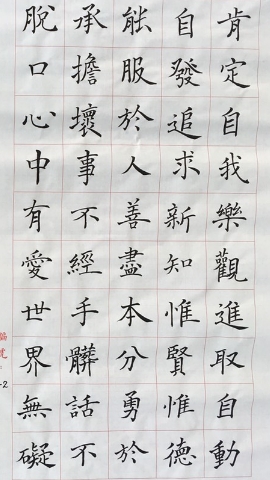 肯定自我樂觀進取自動
自發追求新知惟賢惟德
能服於人善盡本分勇於
承擔壞事不經手髒話不
脫口心中有愛世界無礙